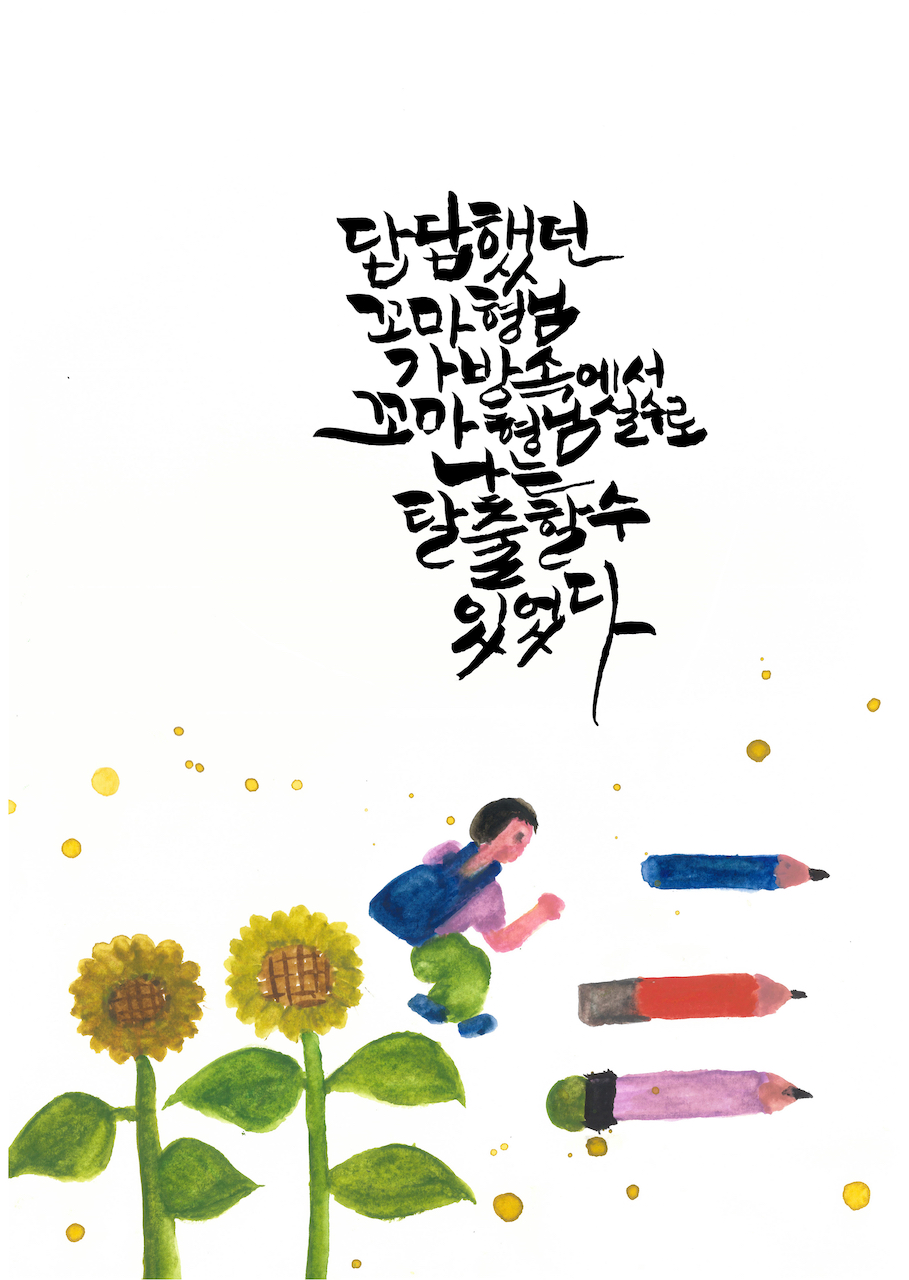 답답했던
꼬마형님
가방속에서
꼬마형님 실수로
나는
탈출할수
있었다